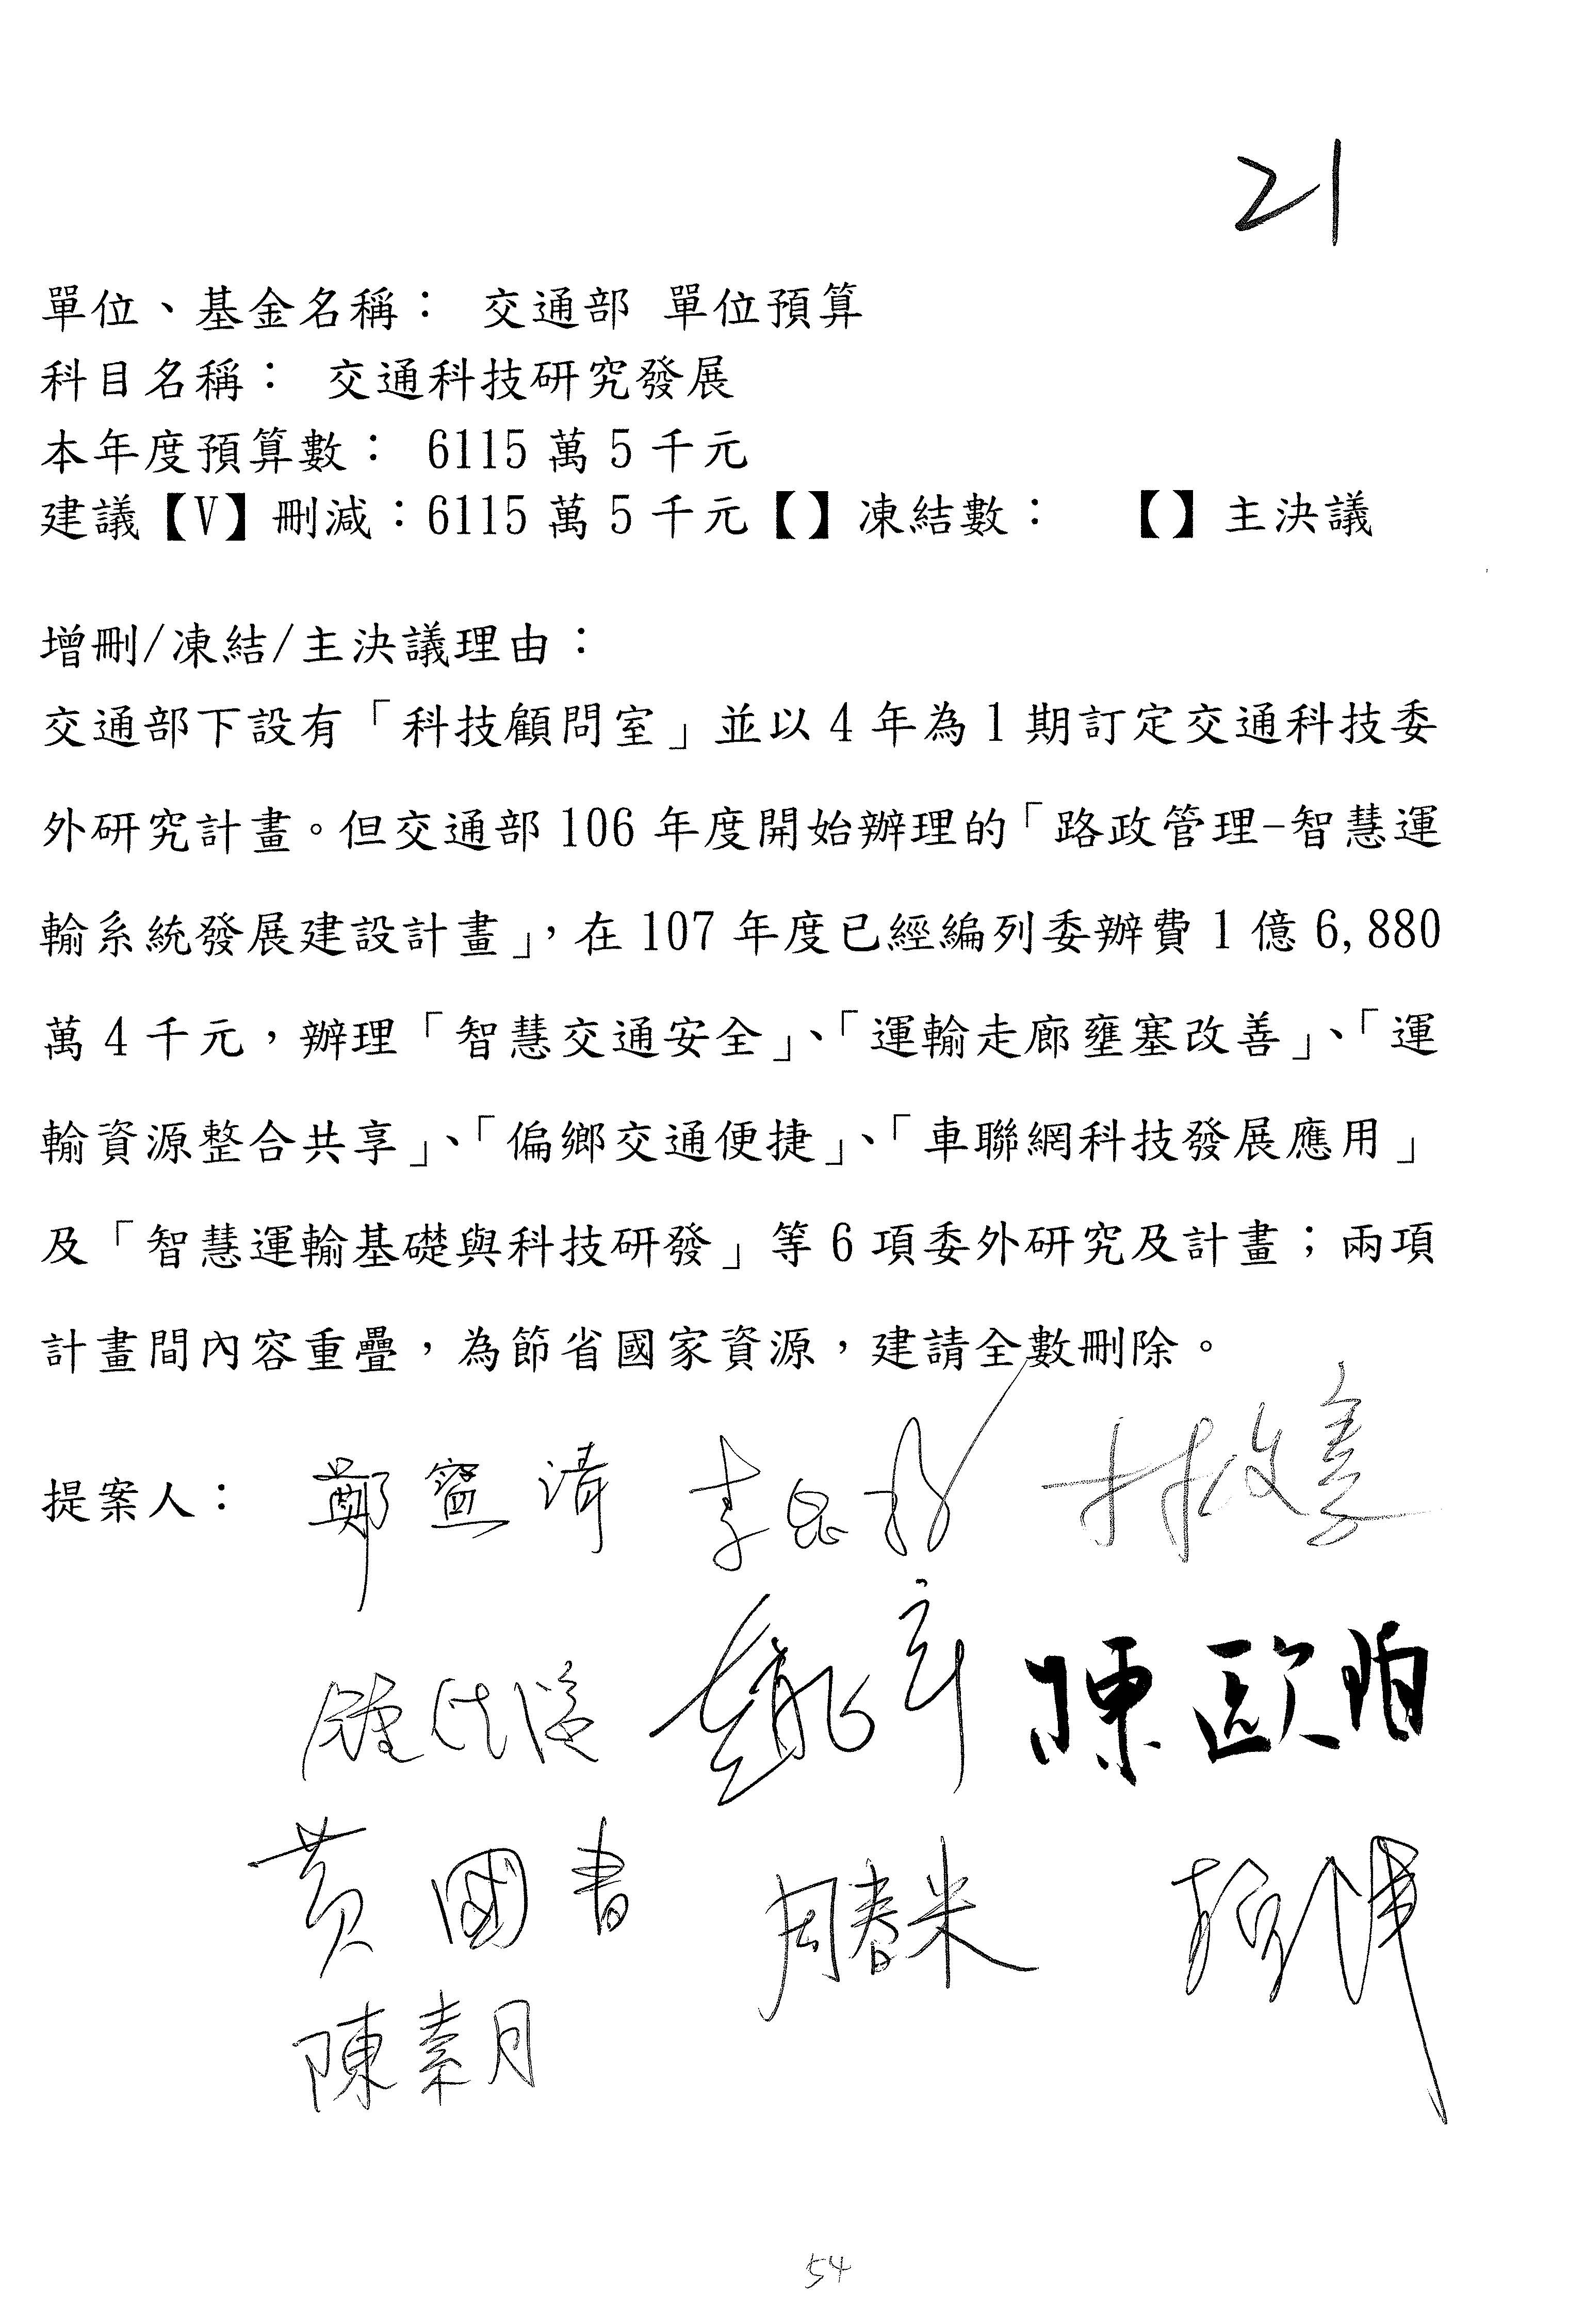 21
單位、基金名稱： 交通部 單位預算
科目名稱： 交通科技研究發展
本年度預算數： 6115 萬 5 千元
建議【V】刪減：6115 萬 5 千元【】凍結數： 【】主決議
增刪/凍結/主決議理由：
交通部下設有「科技顧問室」並以 4 年為 1 期訂定交通科技委
外研究計畫。但交通部 106 年度開始辦理的「路政管理-智慧運
輸系統發展建設計畫」，在 107 年度已經編列委辦費 1 億 6,880
萬 4 千元，辦理「智慧交通安全」、「運輸走廊壅塞改善」、「運
輸資源整合共享」、「偏鄉交通便捷」、「車聯網科技發展應用」
及「智慧運輸基礎與科技研發」等 6 項委外研究及計畫；兩項
計畫間內容重疊，為節省國家資源，建請全數刪除。
提案人： 鄭寶清 李昆澤 林俊憲
陳歐珀
黃國書 周春米
陳素月
54